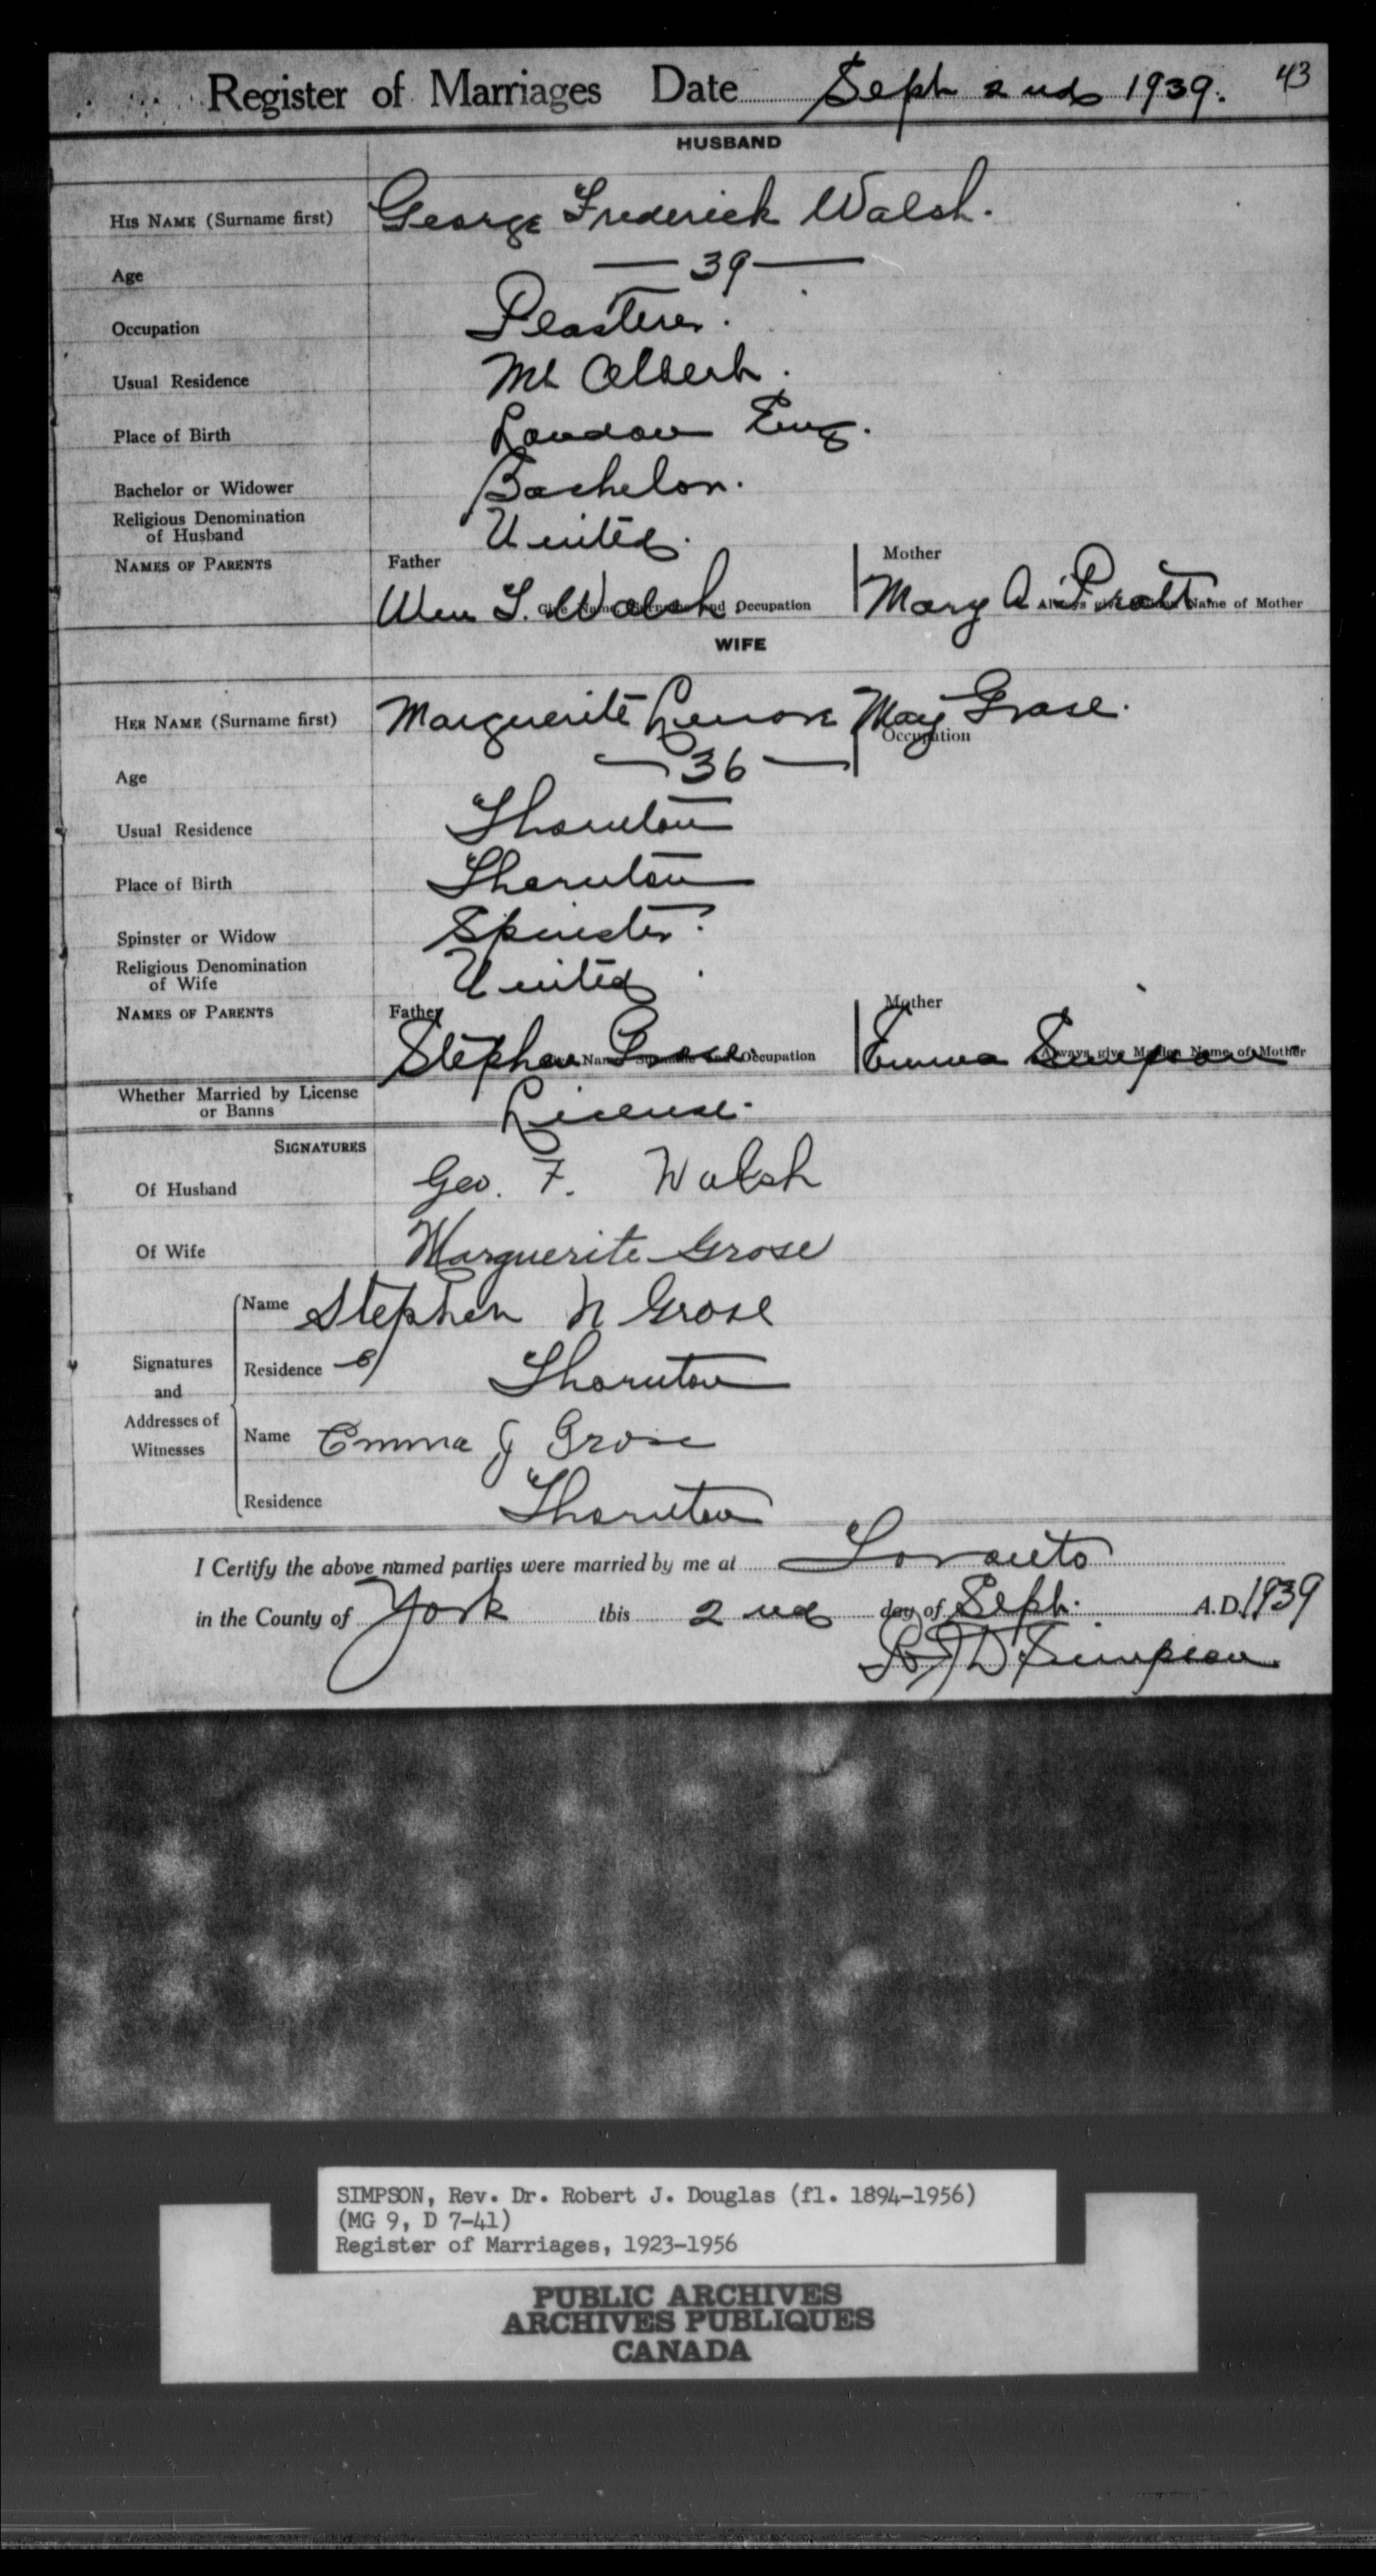 Register of Marriages Date Sept 2nd 1939. 43
HUSBAND
HIS NAME (Surname first) George Frederick Walsh.
Age 39
Occupation Plasterer.
Usual Residence Mt Albert.
Place of Birth London Eng.
Bachelor or Widower Bachelor.
Religious Denomination of Husband United.
NAMES OF PARENTS Father Mother
Wm T. Walsh Give Name, Surname and Occupation Mary A. Pratt. Always give Maiden Name of Mother
WIFE
HER NAME (Surname first) Marguerite Lenore May Grose. Occupation
Age 36
Usual Residence Thornton
Place of Birth Thornton
Spinster or Widow Spinster.
Religious Denomination of Wife United.
NAMES OF PARENTS Father Mother
Stephen Grose. Give Name, Surname and Occupation Emma Simpson Always give Maiden Name of Mother
Whether Married by License or Banns License.
SIGNATURES
Of Husband Geo. F. Walsh
Of Wife Marguerite Grose
Signatures and Addresses of Witnesses
Name Stephen N Grose
Residence Thornton
Name Emma J Grose
Residence Thornton
I Certify the above named parties were married by me at Toronto
in the County of York this 2nd day of Sept. A.D. 1939
R J D Simpson
SIMPSON, Rev. Dr. Robert J. Douglas (fl. 1894-1956)
(MG 9, D 7-41)
Register of Marriages, 1923-1956
PUBLIC ARCHIVES
ARCHIVES PUBLIQUES
CANADA